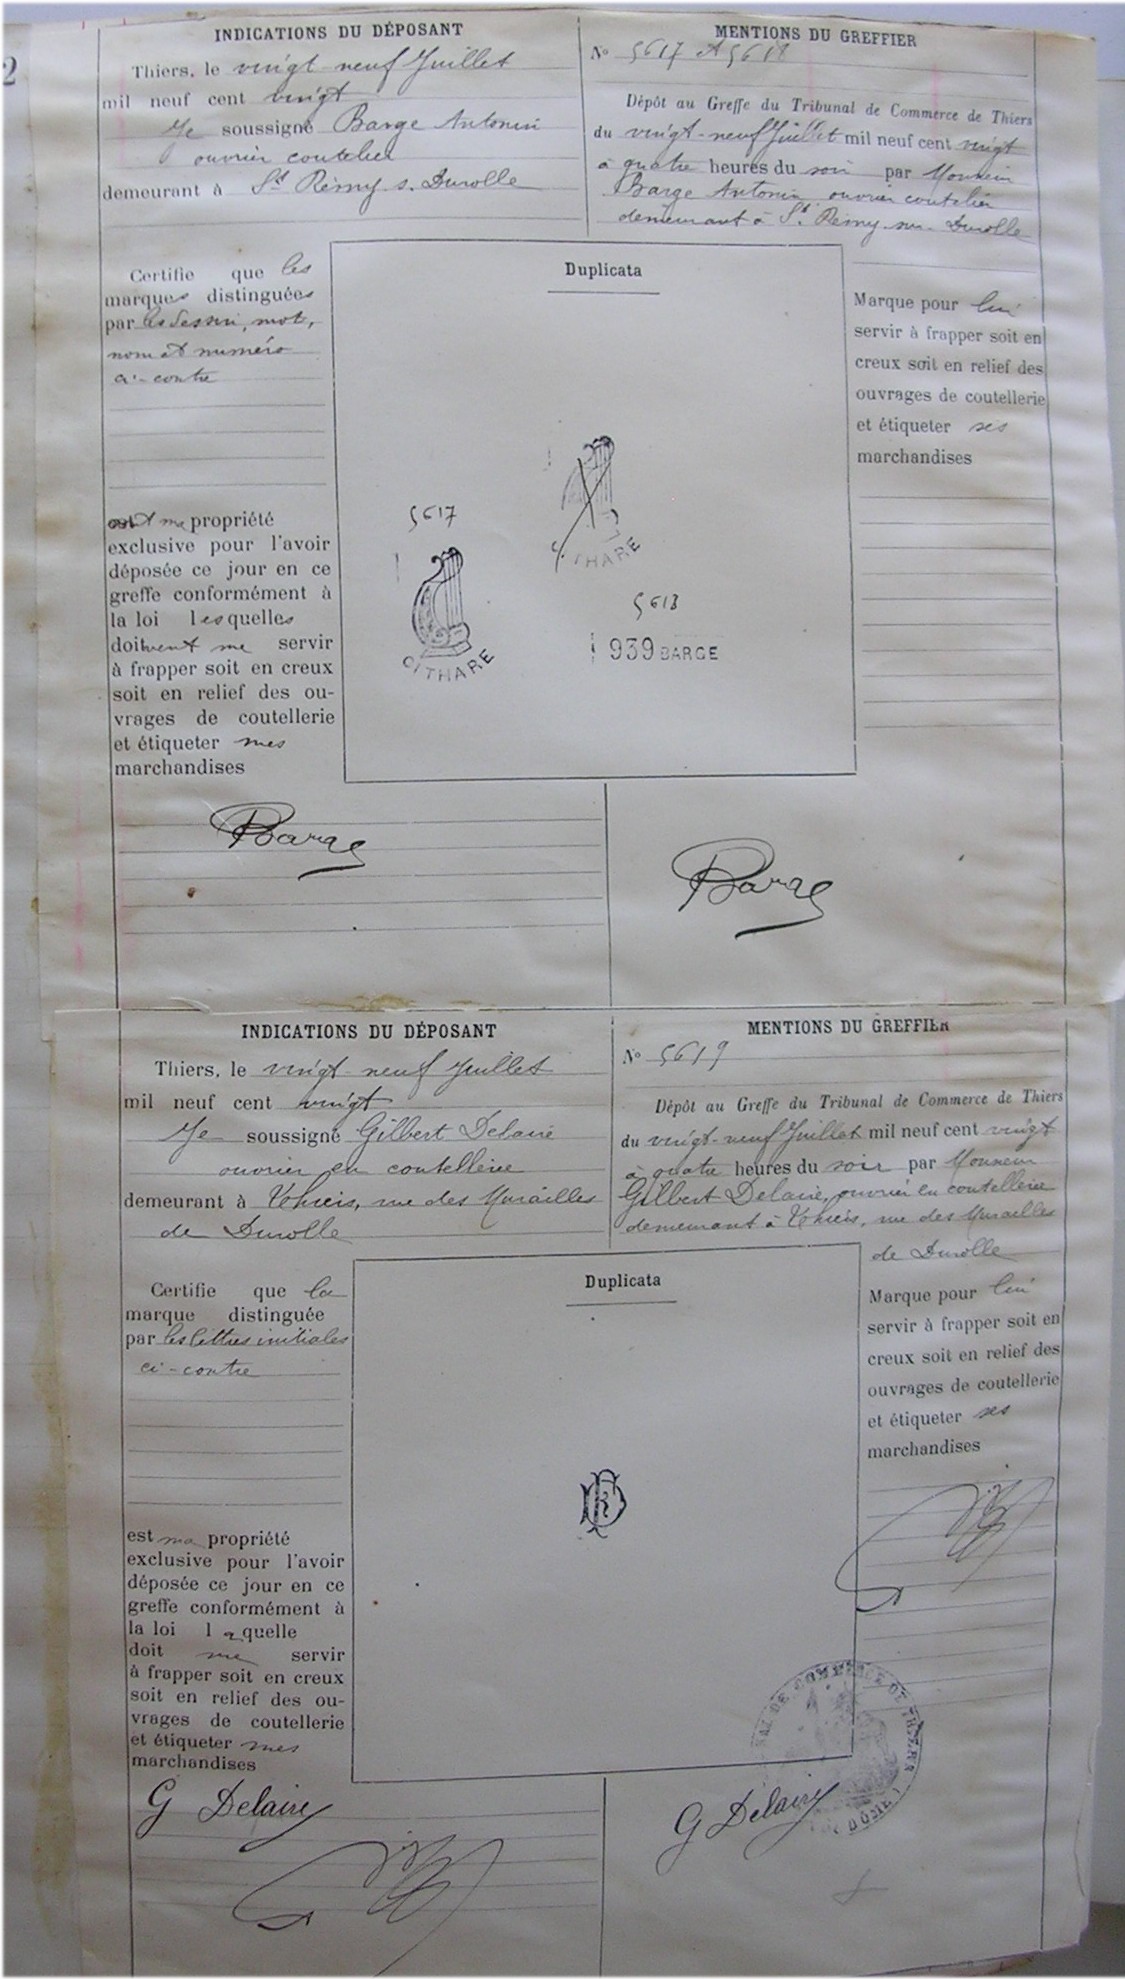 2
INDICATIONS DU DÉPOSANT
Thiers, le vingt-neuf Juillet
mil neuf cent vingt
Je soussigné Barge Antonin
ouvrier coutelier
demeurant à St Rémy s. Durolle
MENTIONS DU GREFFIER
No 5617 A 5618
Dépôt au Greffe du Tribunal de Commerce de Thiers
du vingt-neuf Juillet mil neuf cent vingt
à quatre heures du soir par Monsieur
Barge Antonin ouvrier coutelier
demeurant à St. Rémy-sur-Durolle
Certifie que les
marques distinguées
par les dessin, mot,
nom et numéro
ci-contre
ont ma propriété
exclusive pour l'avoir
déposée ce jour en ce
greffe conformément à
la loi lesquelles
doivent me servir
à frapper soit en creux
soit en relief des ou-
vrages de coutellerie
et étiqueter mes
marchandises
Duplicata
5617
CITHARE
CITHARE
5618
939 BARGE
Marque pour lui
servir à frapper soit en
creux soit en relief des
ouvrages de coutellerie
et étiqueter ses
marchandises
Barge
Barge
INDICATIONS DU DÉPOSANT
Thiers, le vingt-neuf Juillet
mil neuf cent vingt
Je soussigné Gilbert Delaire
ouvrier en coutellerie
demeurant à Thiers, rue des Murailles
de Durolle
MENTIONS DU GREFFIER
No 5619
Dépôt au Greffe du Tribunal de Commerce de Thiers
du vingt-neuf Juillet mil neuf cent vingt
à quatre heures du soir par Monsieur
Gilbert Delaire, ouvrier en coutellerie
demeurant à Thiers, rue des Murailles
de Durolle
Certifie que la
marque distinguée
par les lettres initiales
ci-contre
est ma propriété
exclusive pour l'avoir
déposée ce jour en ce
greffe conformément à
la loi laquelle
doit me servir
à frapper soit en creux
soit en relief des ou-
vrages de coutellerie
et étiqueter mes
marchandises
Duplicata
Marque pour lui
servir à frapper soit en
creux soit en relief des
ouvrages de coutellerie
et étiqueter ses
marchandises
DE COMMERCE DE THIERS
DOME
G Delaire
G Delaire